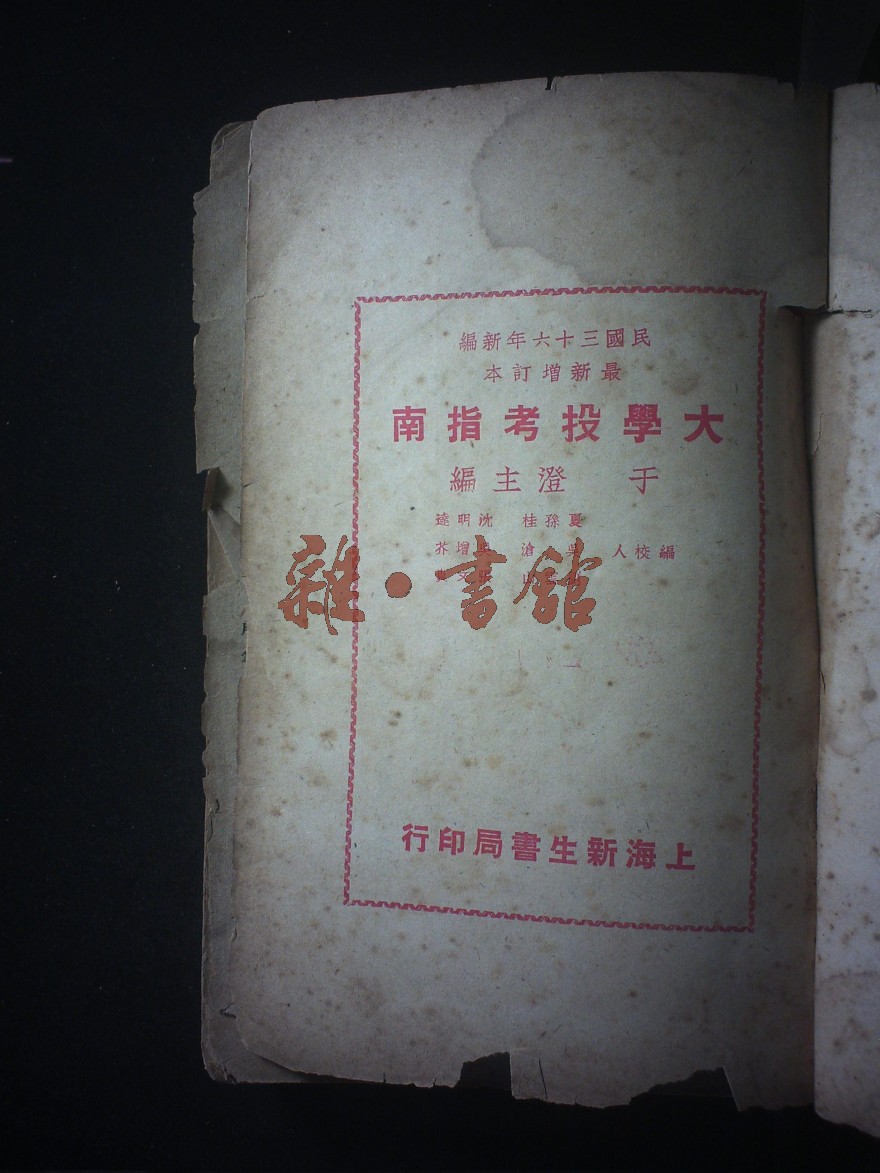 民國三十六年新編
最新增訂本
大學投考指南
于澄主編
夏孫桂 沈明達
編校人 吳滄 增芥
文
上海新生書局印行
雜·書館